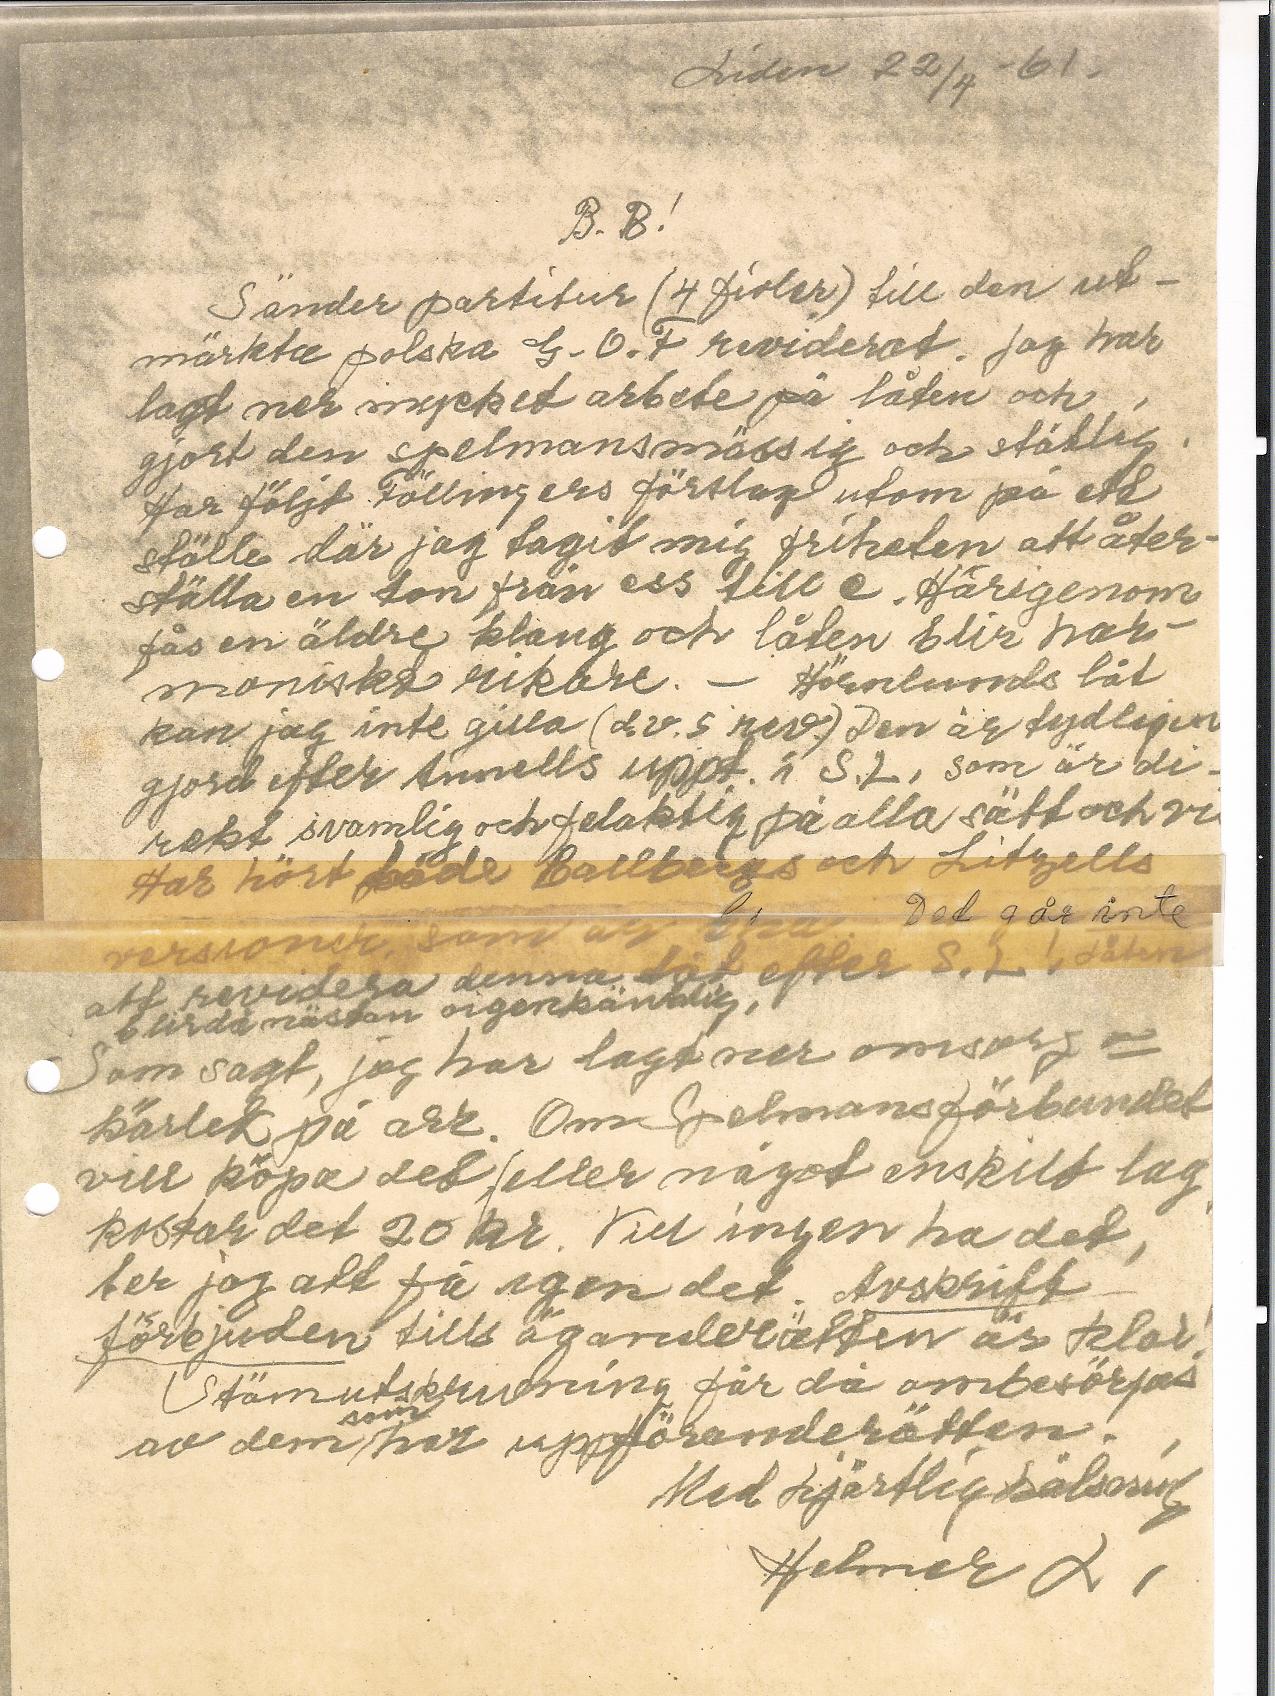 Liden 22/4 -61.
B. B!
Sänder partitur (4 fioler) till den ut-
märkta polska G. O. F reviderat. Jag har
lagt ner mycket arbete på låten och
gjort den spelmansmässig och ståtlig.
Har följt Föllingers förslag utom på ett
ställe där jag tagit mig friheten att åter-
ställa en ton från ess till e. Härigenom
fås en äldre klang och låten blir har-
moniskt rikare. — Hörnlunds låt
kan jag inte gilla (d.v.s rev.) Den är tydligen
gjord efter Annells uppt. i S.L, som är di-
rekt svamlig och felaktig på alla sätt och vi
Har hört både Ballbergs och Litzells
versioner, som är bra. Det går inte
att revidera denna låt efter S.L!, låten
blir då nästan oigenkännlig.
Som sagt, jag har lagt ner omsorg o
kärlek på arr. Om Spelmansförbundet
vill köpa det (eller något enskilt lag
kostar det 20 kr. Vill ingen ha det,
ber jag att få igen det. Avskrift
förbjuden tills äganderätten är klar!
Stämutskrivning får då ombesörjas
av dem som har uppföranderätten.
Med hjärtlig hälsning
Helmer L,